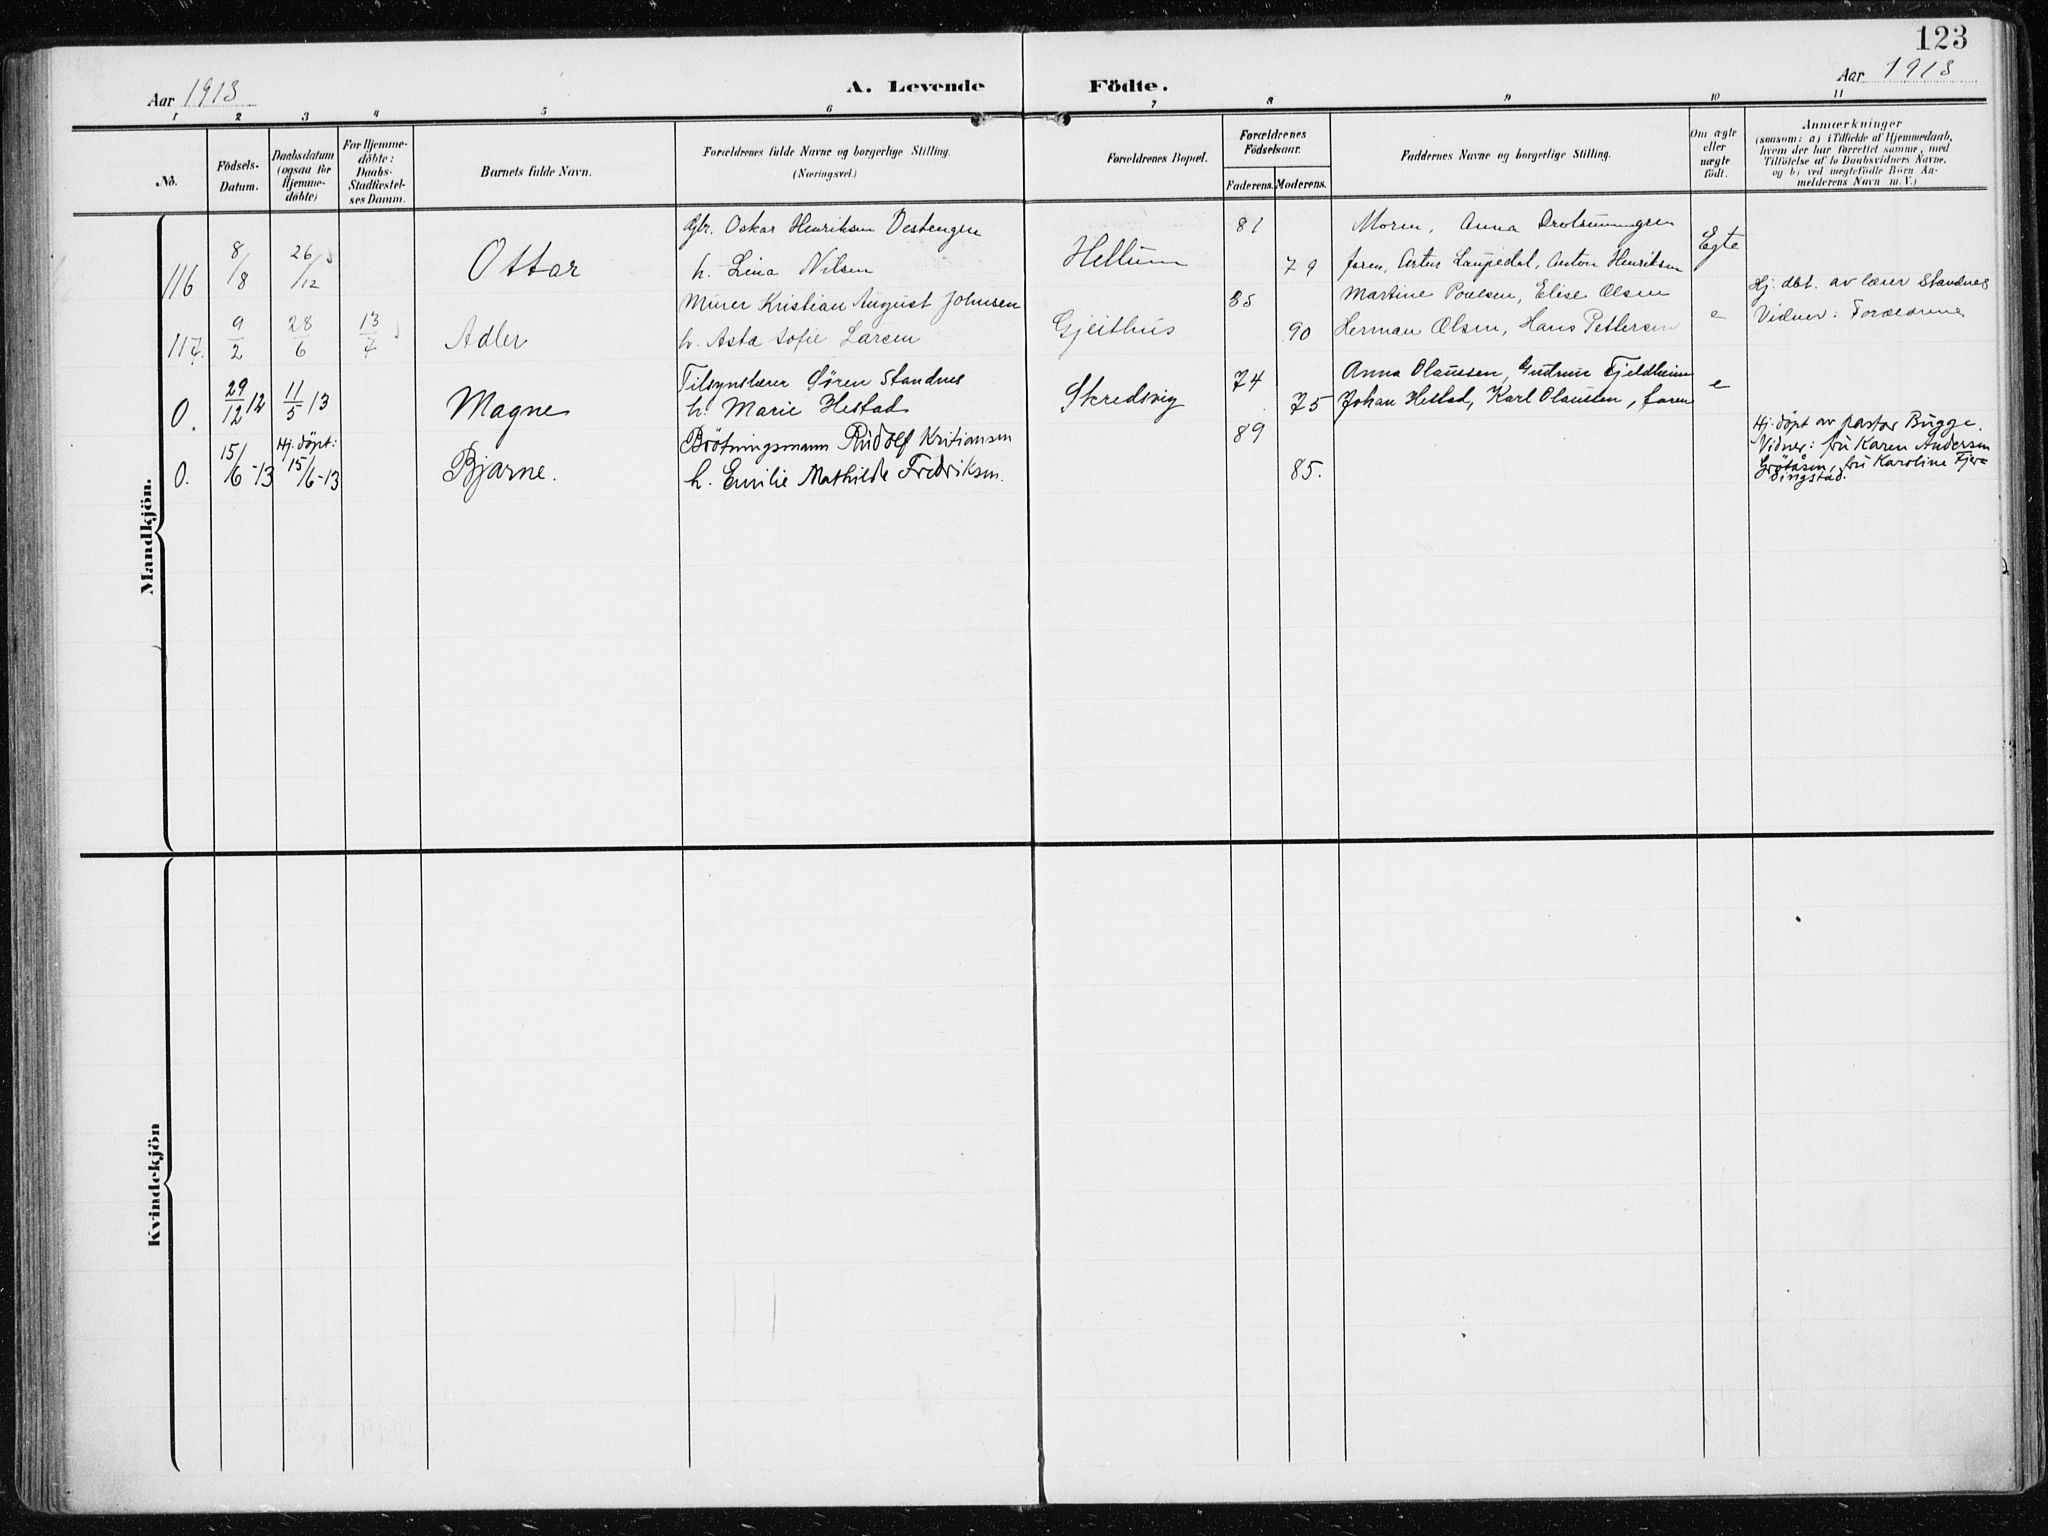 123
Aar 1913
A. Levende Födte.
Aar 1913
1 2 3 4 5 6 7 8 9 10 11
No.
Födsels-
Datum.
Daabsdatum
(ogsaa for
Hjemme-
döbte)
For Hjemme-
döbte:
Daabs-
Stadfæstel-
ses Datum.
Barnets fulde Navn.
Forældrenes fulde Navne og borgerlige Stilling.
(Næringsvei.)
Forældrenes Bopæl.
Forældrenes
Födselsaar.
Faderens. Moderens.
Faddernes Navne og borgerlige Stilling.
Om ægte
eller
uægte
födt.
Anmærkninger
(saasom: a) i Tilfælde af Hjemmedaab,
hvem der har forrettet samme, med
Tilföielse af to Daabsvidners Navne.
og b) ved uægtefödte Börn An-
melderens Navn m. V.)
Mandkjön.
116 8/8 26/12 Ottar
Gbr. Oskar Henriksen Vestengen
h. Lina Nilsen
Hellum 81 79
Moren, Anna
faren, Artur Laupedal, Anton Henriksen
Egte
117. 9/2 28/6 13/7 Adler
Murer Kristian August Johnsen
h. Asta Sofie Larsen
Gjeithus 85 90
Martine Poulsen, Elise Olsen
Herman Olsen, Hans Pettersen
e
Hj. dbt. av lærer Standnes
Vidner: Forældrene
0. 29/12 12 11/5 13 Magne
Tilsynslærer Søren Standnes
h. Marie Hestad
Skredsvig 74 75
Anna Olaussen, Gudrun Fjeldheim
Johan Hestad, Karl Olaussen, faren
e
0. 15/6-13 Hj. döpt: 15/6-13 Bjarne.
Brötningsmann Rudolf Kritiansen
h. Emilie Mathilde Fredriksen.
89 85.
Hj. döpt av pastor Bugge.
Vidner: fru Karen Andersen
Grötåsen, fru Karoline Fjer=
dingstad.
Kvindekjön